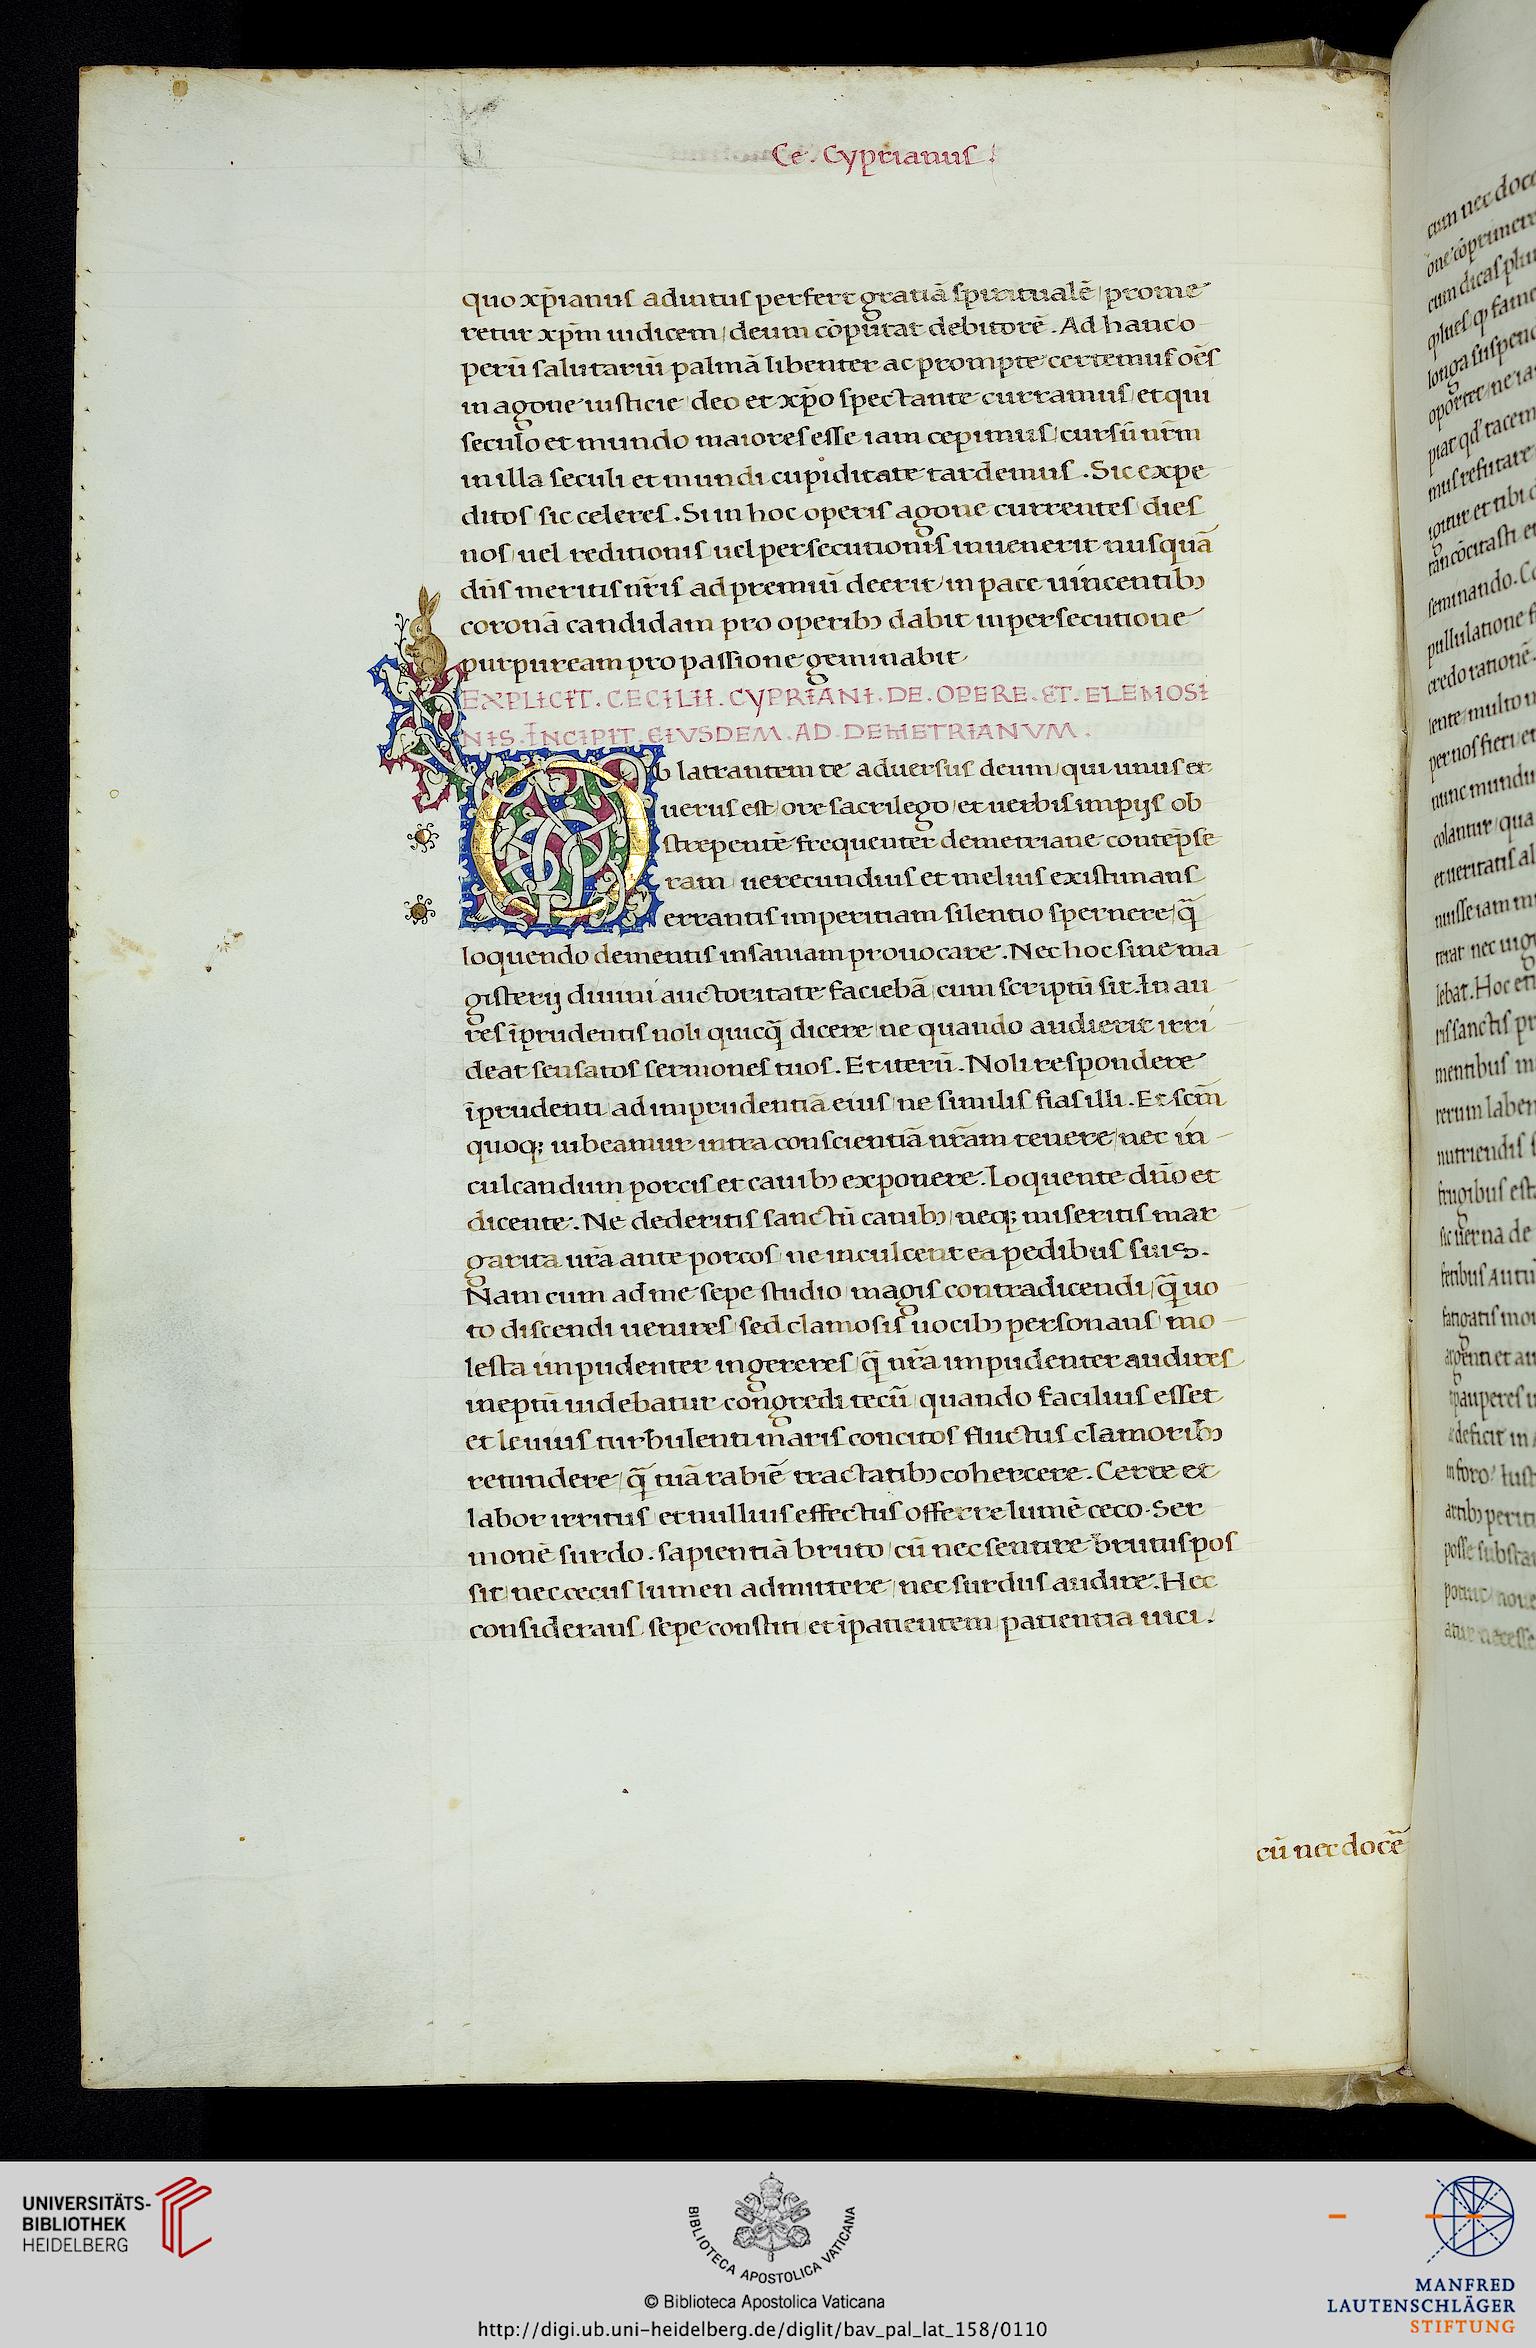 Ce. Cyprianus.
quo xp̄ianus adiutus perfert gratiā spiritualē prome
retur xp̄m iudicem deum cōputat debitorē. Ad hanc o
perū salutariū palmā libenter ac prompte certemus oēs
in agone iusticie deo et xp̄o spectante curramus et qui
seculo et mundo maiores esse iam cepimus cursū nr̄m
nulla seculi et mundi cupiditate tardemus. Sic expe
ditos sic celeres. Si in hoc operis agone currentes dies
nos uel reditionis uel persecutionis inuenerit nusquā
dn̄s meritis nr̄is ad premiū deerit in pace uincentibꝫ
coronā candidam pro operibꝫ dabit in persecutione
purpuream pro passione geminabit
EXPLICIT. CECILII. CYPRIANI. DE. OPERE. ET. ELEMOSI
NIS. INCIPIT. EIVSDEM. AD. DEMETRIANVM.
Ob latrantem te aduersus deum qui unus et
uerus est ore sacrilego et uerbis impijs ob
strepentē frequenter demetriane contēpse
ram uerecundius et melius existimans
errantis imperitiam silentio spernere q̄
loquendo dementis insaniam prouocare. Nec hoc sine ma
gisterij diuini auctoritate faciebā cum scriptū sit. In au
res īprudentis noli quicq̄ dicere ne quando audierit irri
deat sensatos sermones tuos. Et iterū. Noli respondere
īprudenti ad imprudentiā eius ne similis fias illi. Et scm̄
quoq; iubeamur intra conscientiā nr̄am tenere nec in
culcandum porcis et canibꝫ exponere. Loquente dn̄o et
dicente. Ne dederitis sanctū canibꝫ neq; miseritis mar
garita ur̄a ante porcos ne inculcent ea pedibus suis.
Nam cum ad me sepe studio magis contradicendi q̄ uo
to discendi uenires sed clamosis uocibꝫ personans mo
lesta impudenter ingereres q̄ nr̄a impudenter audires
ineptū uidebatur congredi tecū quando facilius esset
et leuius turbulenti maris concitos fluctus clamoribꝫ
retundere q̄ tuā rabiē tractatibꝫ cohercere. Certe et
labor irritus et nullius effectus offerre lumē ceco. Ser
monē surdo. sapientiā bruto cū nec sentire brutus pos
sit nec cecus lumen admittere nec surdus audire. Hec
considerans sepe constiti et īpatientem patientia uici.
cū nec docē
UNIVERSITÄTS-
BIBLIOTHEK
HEIDELBERG
BIBLIOTECA APOSTOLICA VATICANA
© Biblioteca Apostolica Vaticana
http://digi.ub.uni-heidelberg.de/diglit/bav_pal_lat_158/0110
MANFRED
LAUTENSCHLÄGER
STIFTUNG